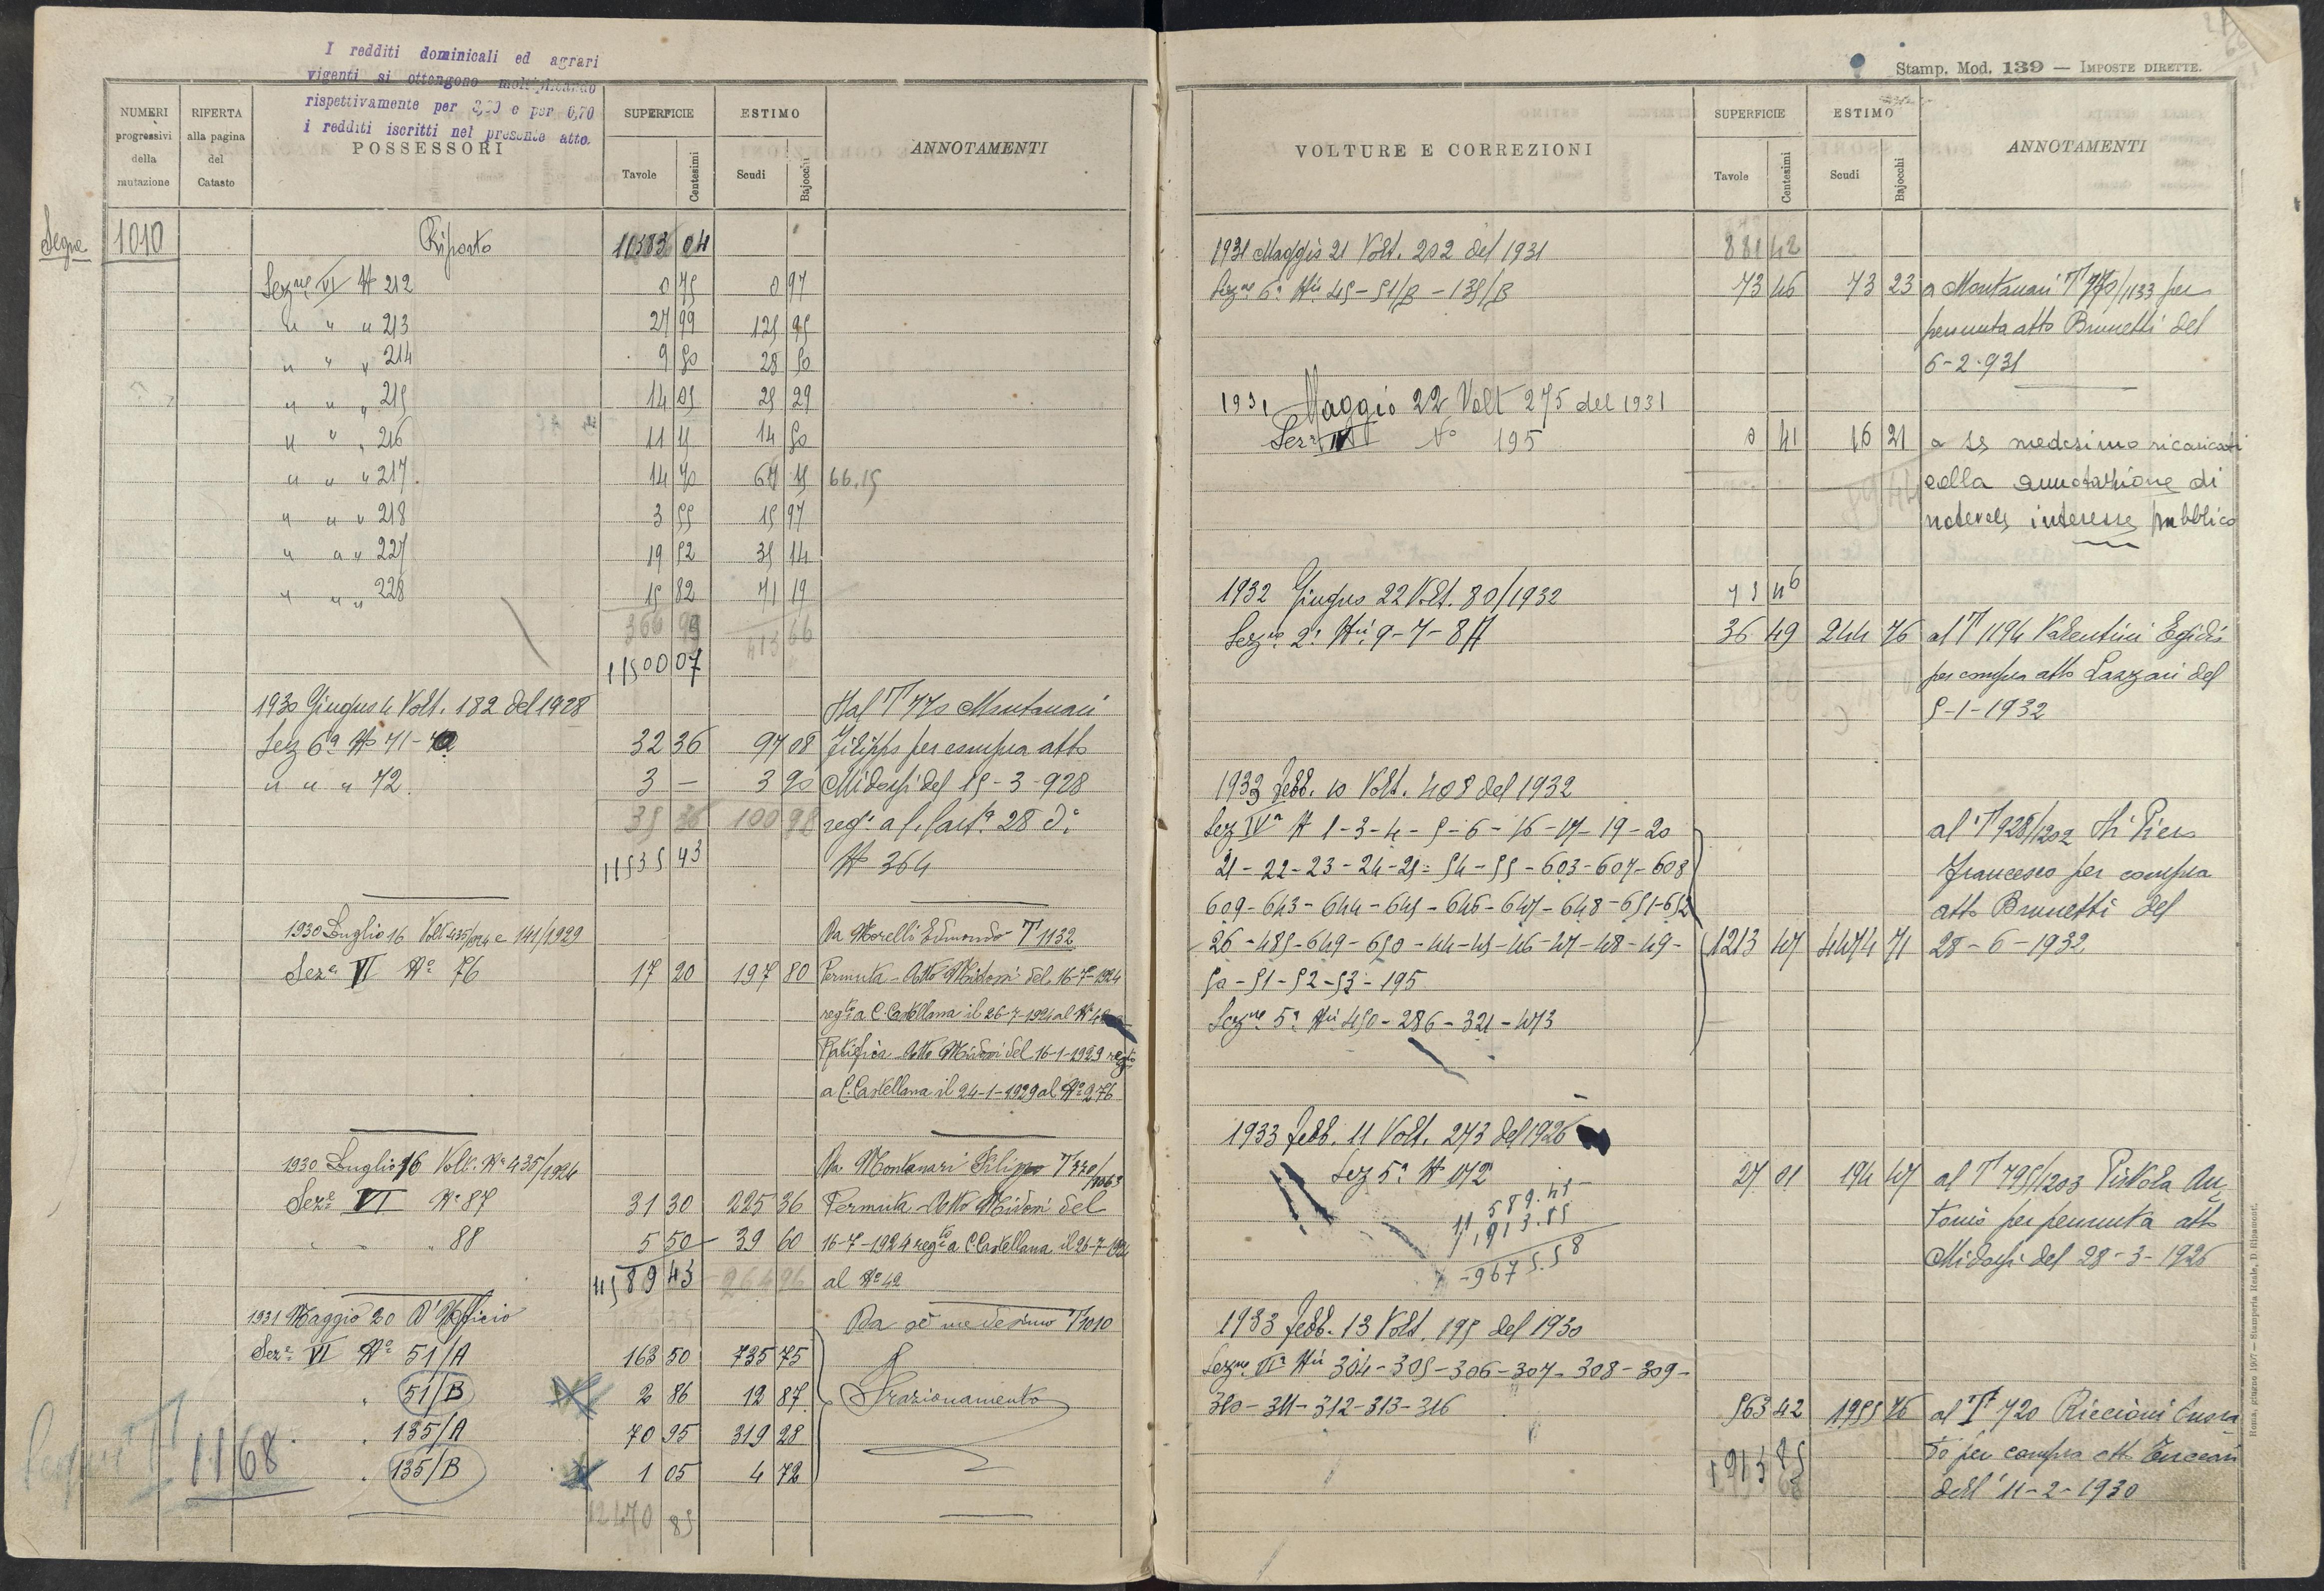 I redditi dominicali ed agrari
vigenti si ottengono moltiplicando
rispettivamente per 3,20 e per 6,70
i redditi iscritti nel presente atto.
NUMERI progressivi della mutazione
RIFERTA alla pagina del Catasto
POSSESSORI
SUPERFICIE Tavole Centesimi
ESTIMO Scudi Bajocchi
ANNOTAMENTI
Segue 1010 Riporto 11383 04
Sezne VI N 212 0 75 0 97
" " " 213 27 99 125 95
" " " 214 9 50 28 50
" " " 215 14 05 25 29
" " " 216 11 15 14 50
" " " 217 14 70 67 15 66,15
" " " 218 3 55 15 97
" " " 227 19 52 35 14
" " " 228 15 82 71 19
11500 07
1930 Giugno 4 Volt. 182 del 1928 Dal T 770 Montanari
Sez 6a No 71 32 36 97 08 Filippo per compra atto
" " " 72. 3 — 3 90 Midossi del 15-3-928
35 36 100 98 rego a C. Castna 28 do
11535 43 N 364
1930 Luglio 16 Volt 435/924 e 141/1929 Da Morelli Edmondo T 1132
Seze VI No 76 17 20 197 80 Permuta - Atto Midossi del 16-7-1924
regto a C. Castellana il 26-7-1924 al No 42
Ratifica - Atto Midossi del 16-1-1929 regto
a C. Castellana il 24-1-1929 al No 276
1930 Luglio 16 Volt. No 435/1924 Da Montanari Filippo T 770/1063
Seze VI No 87 31 30 225 36 Permuta Atto Midossi del
" " " 88 5 50 39 60 16-7-1924 regto a C. Castellana il 26-7-1924
11589 43 264 96 al No 42
1931 Maggio 20 D'Ufficio Da sè medesimo T 1010
Seze VI No 51/A 163 50 735 75
" 51/B 2 86 12 87 Frazionamento
" 135/A 70 95 319 28
" 135/B 1 05 4 72
Segue T 1168
12470 85
Stamp. Mod. 139 — IMPOSTE DIRETTE.
VOLTURE E CORREZIONI
SUPERFICIE Tavole Centesimi
ESTIMO Scudi Bajocchi
ANNOTAMENTI
881 42
1931 Maggio 21 Volt. 202 del 1931
Sezne 6a Ni 45-51/B-135/B 73 46 73 23 a Montanari T 770/1133 per
permuta atto Brunetti del
6-2-931
1931 Maggio 22 Volt 275 del 1931
Seze IV No 195 0 41 16 21 a se medesimo ricaricati
colla annotazione di
notevole interesse pubblico
1932 Giugno 22 Volt. 80/1932
Sezne 2a Ni 9-7-8A 36 49 244 76 al T 1194 Valentini Egidio
per compra atto Lazzari del
5-1-1932
1933 Febb. 10 Volt. 408 del 1932
Sez IVa N 1-3-4-5-6-16-17-19-20 al T 928/1202
21-22-23-24-25-54-55-603-607-608 Francesco per compra
609-643-644-645-646-647-648-651-652 atto Brunetti del
26-485-649-650-44-45-46-47-48-49- 1213 47 4474 71 28-6-1932
50-51-52-53-195
Sezne 5a Ni 450-286-321-473
1933 Febb. 11 Volt. 273 del 1926
Sez 5a N 172 27 01 194 47 al T 795/1203 Pistola An
tonio per permuta atto
Midossi del 28-3-1926
1933 Febb. 13 Volt. 195 del 1930
Sezne VIa Ni 304-305-306-307-308-309-
310-311-312-313-316 563 42 1955 76 al T 720 Riccioni
to per compra atto
dell' 11-2-1930
1913 85
Roma, giugno 1907 — Stamperia Reale, D. Ripamonti.